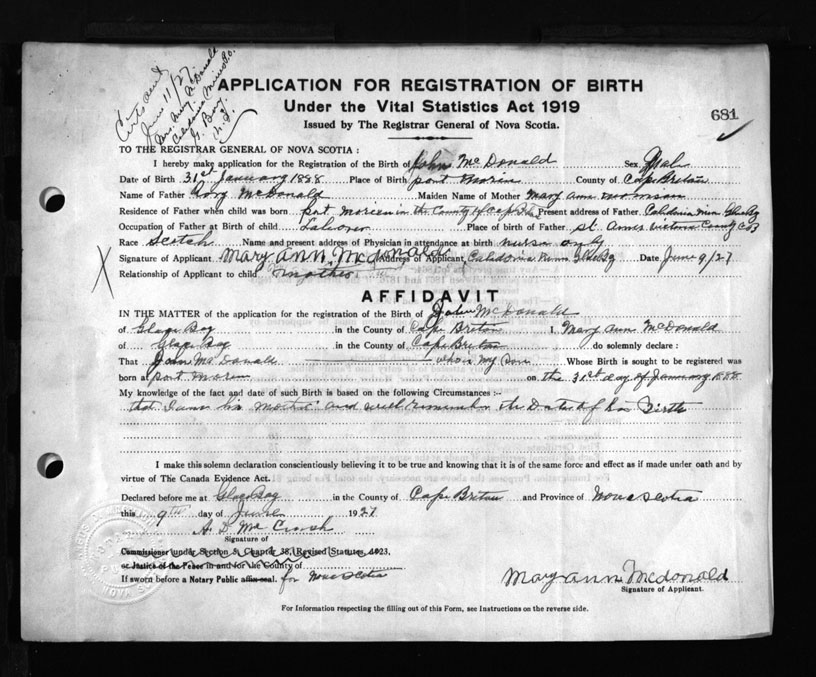 Certs sent
June 11/27
Mrs Mary A McDonald
Caledonia Mines Po.
G. Bay
N.S.
APPLICATION FOR REGISTRATION OF BIRTH
Under the Vital Statistics Act 1919
681
Issued by The Registrar General of Nova Scotia.
TO THE REGISTRAR GENERAL OF NOVA SCOTIA :
I hereby make application for the Registration of the Birth of John McDonald Sex Male
Date of Birth 31st January 1888 Place of Birth port morin County of Cape Breton
Name of Father McDonald Maiden Name of Mother Mary ann morrison
Residence of Father when child was born port in the County of Cap Present address of Father Caledonia
Occupation of Father at Birth of child Laborer Place of birth of Father st Anns victoria County CB
Race Scotch Name and present address of Physician in attendance at birth nurse only
X Signature of Applicant Mary ann Mcdonald Address of Applicant Caledonia Date June 9/27
Relationship of Applicant to child mother
AFFIDAVIT
IN THE MATTER of the application for the registration of the Birth of John McDonald
of Glace Bay in the County of Cape Breton I, Mary Ann McDonald
of Glace Bay in the County of Cape Breton do solemnly declare :
That John McDonald who is my Son Whose Birth is sought to be registered was
born at port morin on the 31st day of January 1888
My knowledge of the fact and date of such Birth is based on the following Circumstances :--
that I am his mother and well remember the Date of his Birth
I make this solemn declaration conscientiously believing it to be true and knowing that it is of the same force and effect as if made under oath and by
virtue of The Canada Evidence Act.
Declared before me at Glace Bay in the County of Cape Breton and Province of Nova Scotia
this 9th day of June 1927
A. D. Mc
Signature of
Commissioner under Section 9, Chapter 38, Revised Statutes, 1923.
or Justice of the Peace in and for the County of
If sworn before a Notary Public affix seal. for Nova Scotia
Mary ann Mcdonald
Signature of Applicant.
For Information respecting the filling out of this Form, see Instructions on the reverse side.